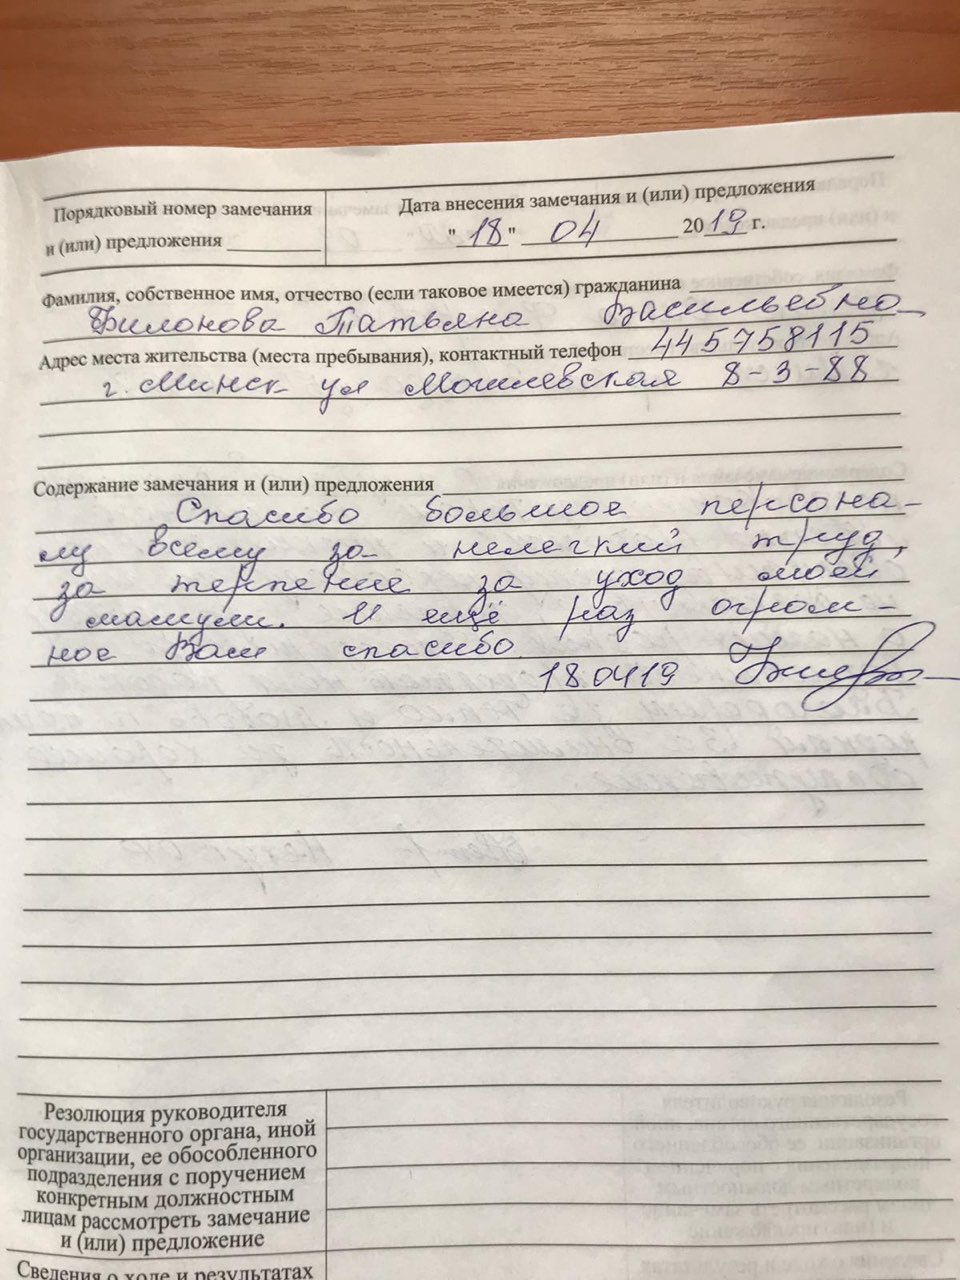 Порядковый номер замечания
и (или) предложения
Дата внесения замечания и (или) предложения
"18" 04 2019 г.
Фамилия, собственное имя, отчество (если таковое имеется) гражданина
Филонова Татьяна Васильевна
Адрес места жительства (места пребывания), контактный телефон 445758115
г. Минск ул Могилевская 8-3-88
Содержание замечания и (или) предложения
Спасибо большое персона-
лу всему за нелегкий труд,
за терпение за уход моей
мамули. И ещё раз огром-
ное Вам спасибо
180419
Резолюция руководителя
государственного органа, иной
организации, ее обособленного
подразделения с поручением
конкретным должностным
лицам рассмотреть замечание
и (или) предложение
Сведения о ходе и результатах